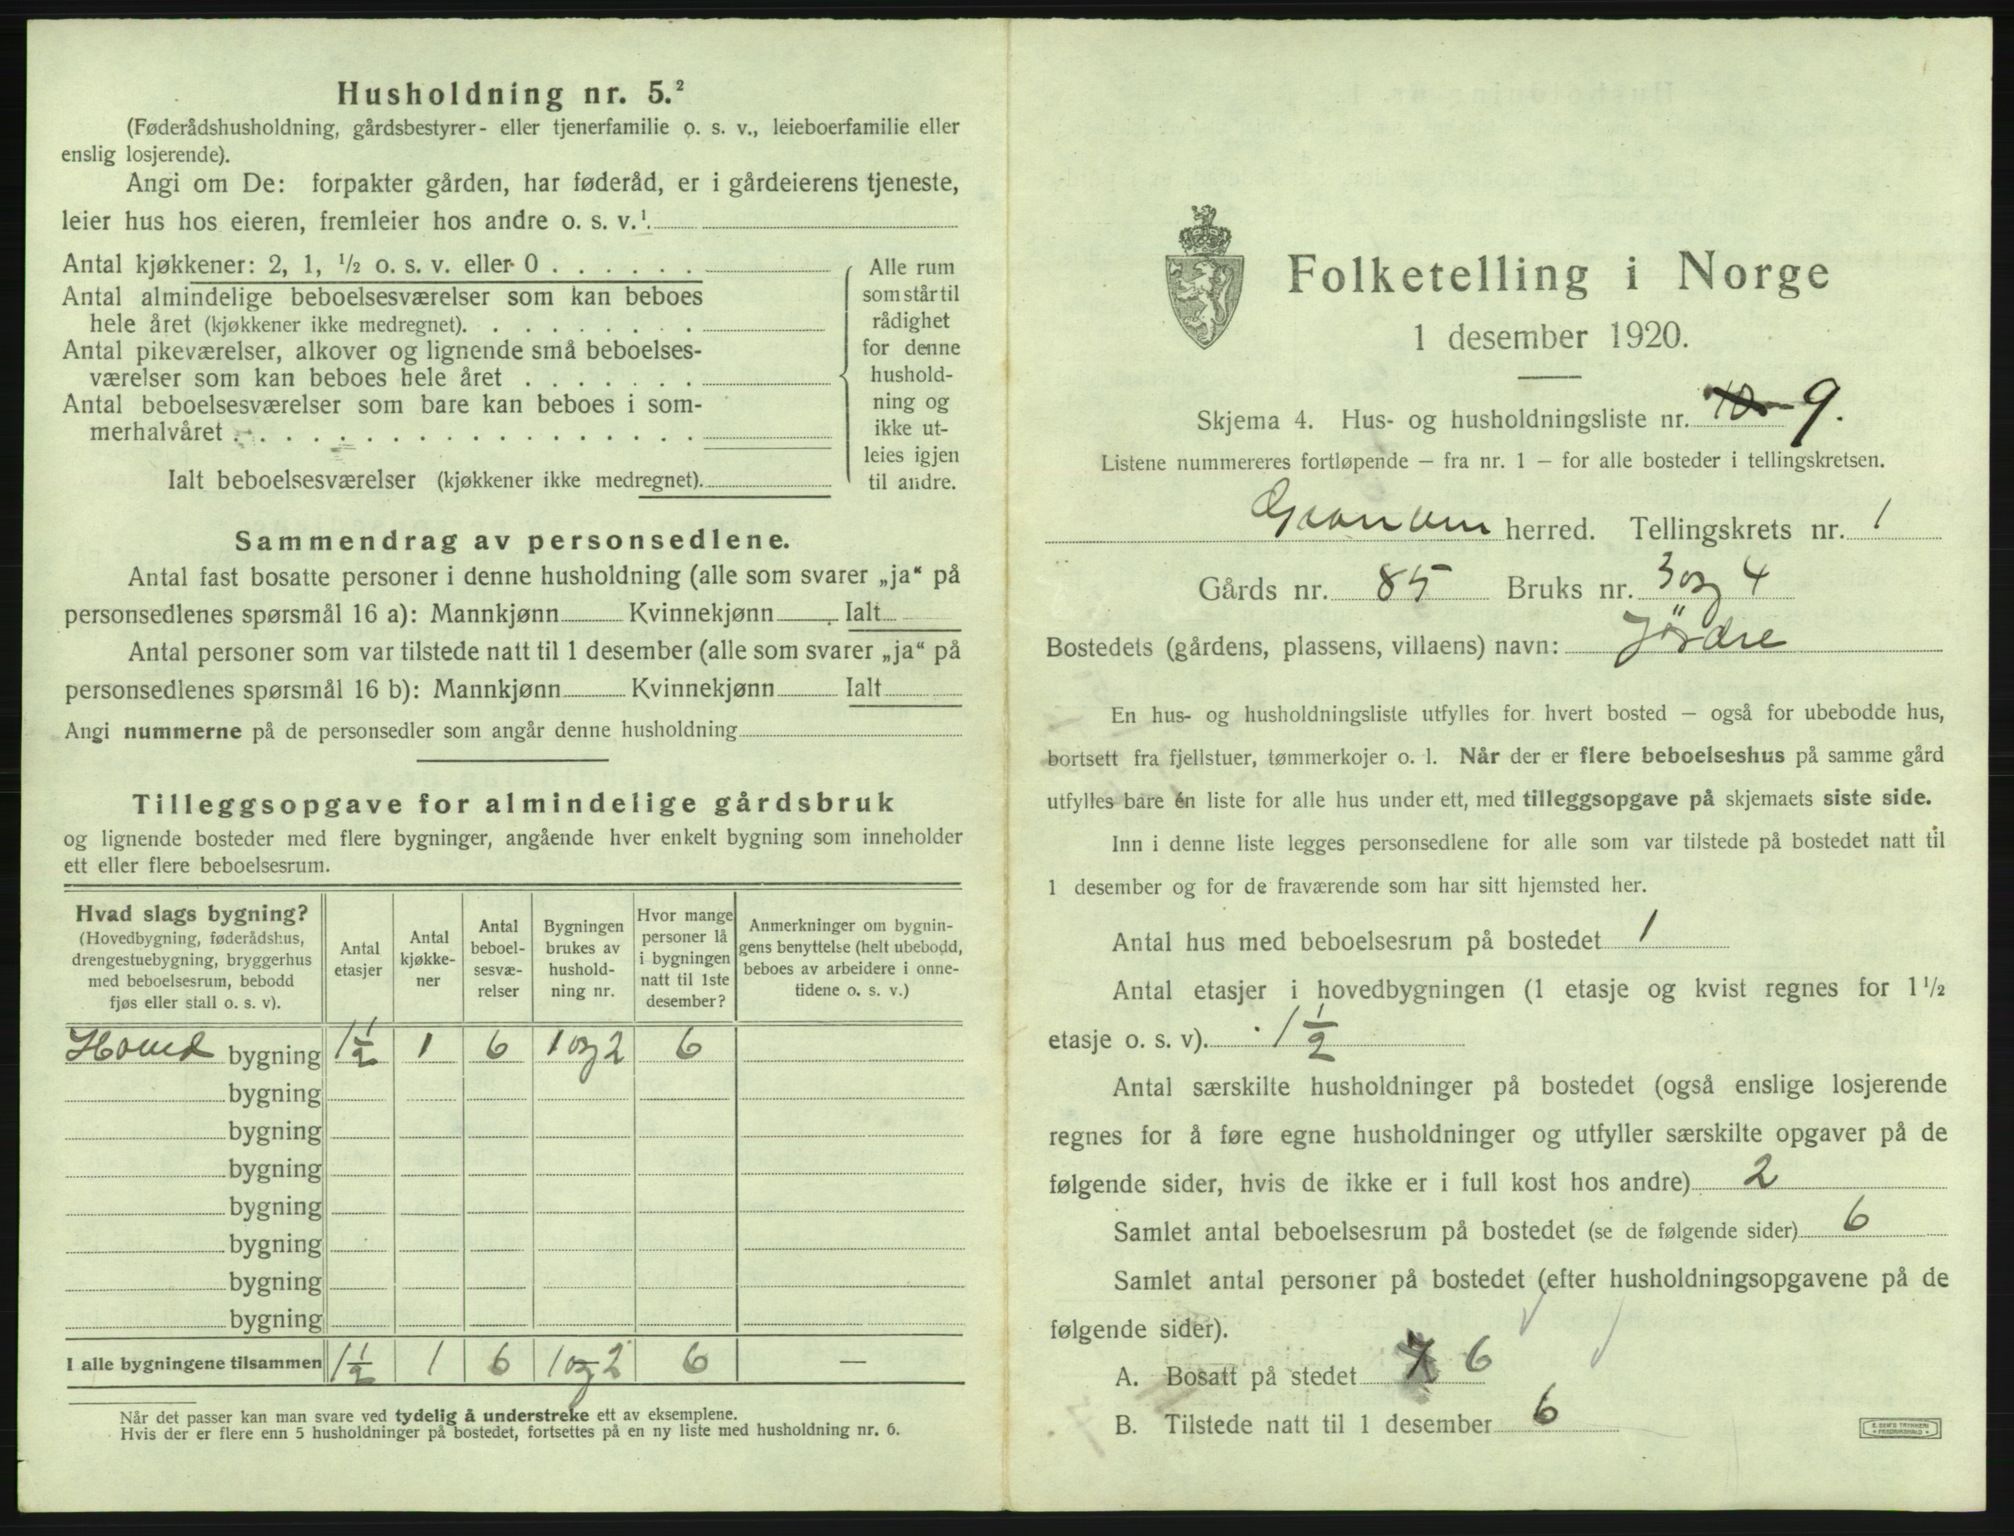 Husholdning nr. 5.²
(Føderådshusholdning, gårdsbestyrer- eller tjenerfamilie o. s. v., leieboerfamilie eller
enslig losjerende).
Angi om De: forpakter gården, har føderåd, er i gårdeierens tjeneste,
leier hus hos eieren, fremleier hos andre o. s. v.¹.
Antal kjøkkener: 2, 1, ½ o. s. v. eller 0 . . . . . .
Antal almindelige beboelsesværelser som kan beboes
hele året (kjøkkener ikke medregnet). . . . . . . . .
Antal pikeværelser, alkover og lignende små beboelses-
værelser som kan beboes hele året . . . . . . .
Antal beboelsesværelser som bare kan beboes i som-
merhalvåret . . . . . . . . . . . . . . . . . .
Ialt beboelsesværelser (kjøkkener ikke medregnet).
Alle rum
som står til
rådighet
for denne
hushold-
ning og
ikke ut-
leies igjen
til andre.
Sammendrag av personsedlene.
Antal fast bosatte personer i denne husholdning (alle som svarer „ja“ på
personsedlenes spørsmål 16 a): Mannkjønn Kvinnekjønn Ialt
Antal personer som var tilstede natt til 1 desember (alle som svarer „ja“ på
personsedlenes spørsmål 16 b): Mannkjønn Kvinnekjønn Ialt
Angi nummerne på de personsedler som angår denne husholdning
Tilleggsopgave for almindelige gårdsbruk
og lignende bosteder med flere bygninger, angående hver enkelt bygning som inneholder
ett eller flere beboelsesrum.
Hvad slags bygning?
(Hovedbygning, føderådshus,
drengestuebygning, bryggerhus
med beboelsesrum, bebodd
fjøs eller stall o. s. v).
Antal
etasjer
Antal
kjøkke-
ner
Antal
beboel-
sesvæ-
relser
Bygningen
brukes av
hushold-
ning nr.
Hvor mange
personer lå
i bygningen
natt til 1ste
desember?
Anmerkninger om bygnin-
gens benyttelse (helt ubebodd,
beboes av arbeidere i onne-
tidene o. s. v.)
Hoved bygning 1½ 1 6 1 og 2 6
bygning
bygning
bygning
bygning
bygning
bygning
bygning
I alle bygningene tilsammen 1½ 1 6 1 og 2 6 —
Når det passer kan man svare ved tydelig å understreke ett av eksemplene.
Hvis der er flere enn 5 husholdninger på bostedet, fortsettes på en ny liste med husholdning nr. 6.
Folketelling i Norge
1 desember 1920.
Skjema 4. Hus- og husholdningsliste nr. 10 9.
Listene nummereres fortløpende – fra nr. 1 – for alle bosteder i tellingskretsen.
herred. Tellingskrets nr. 1
Gårds nr. 85 Bruks nr. 3 og 4
Bostedets (gårdens, plassens, villaens) navn: Jördre
En hus- og husholdningsliste utfylles for hvert bosted – også for ubebodde hus,
bortsett fra fjellstuer, tømmerkojer o. l. Når der er flere beboelseshus på samme gård
utfylles bare én liste for alle hus under ett, med tilleggsopgave på skjemaets siste side.
Inn i denne liste legges personsedlene for alle som var tilstede på bostedet natt til
1 desember og for de fraværende som har sitt hjemsted her.
Antal hus med beboelsesrum på bostedet 1
Antal etasjer i hovedbygningen (1 etasje og kvist regnes for 1½
etasje o. s. v). 1½
Antal særskilte husholdninger på bostedet (også enslige losjerende
regnes for å føre egne husholdninger og utfyller særskilte opgaver på de
følgende sider, hvis de ikke er i full kost hos andre) 2
Samlet antal beboelsesrum på bostedet (se de følgende sider) 6
Samlet antal personer på bostedet (efter husholdningsopgavene på de
følgende sider).
A. Bosatt på stedet 7 6
B. Tilstede natt til 1 desember 6